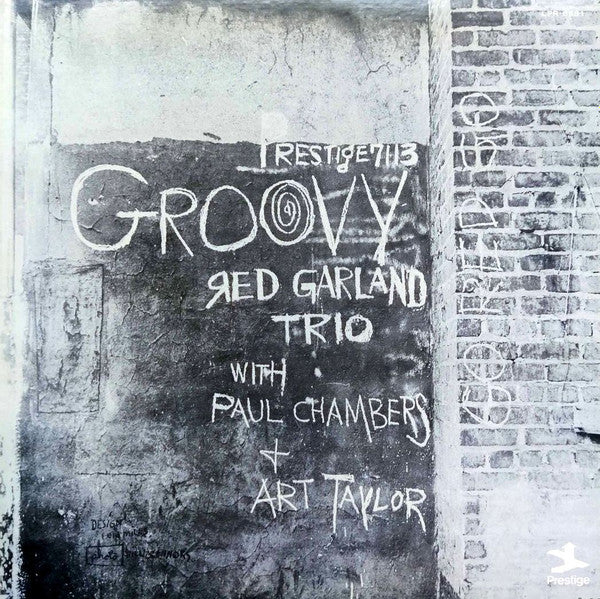 PRESTIGE 7113
GROOVY
RED GARLAND
TRIO
WITH
PAUL CHAMBERS
+
ART TAYLOR
GO RED GO
DESIGN
Prestige